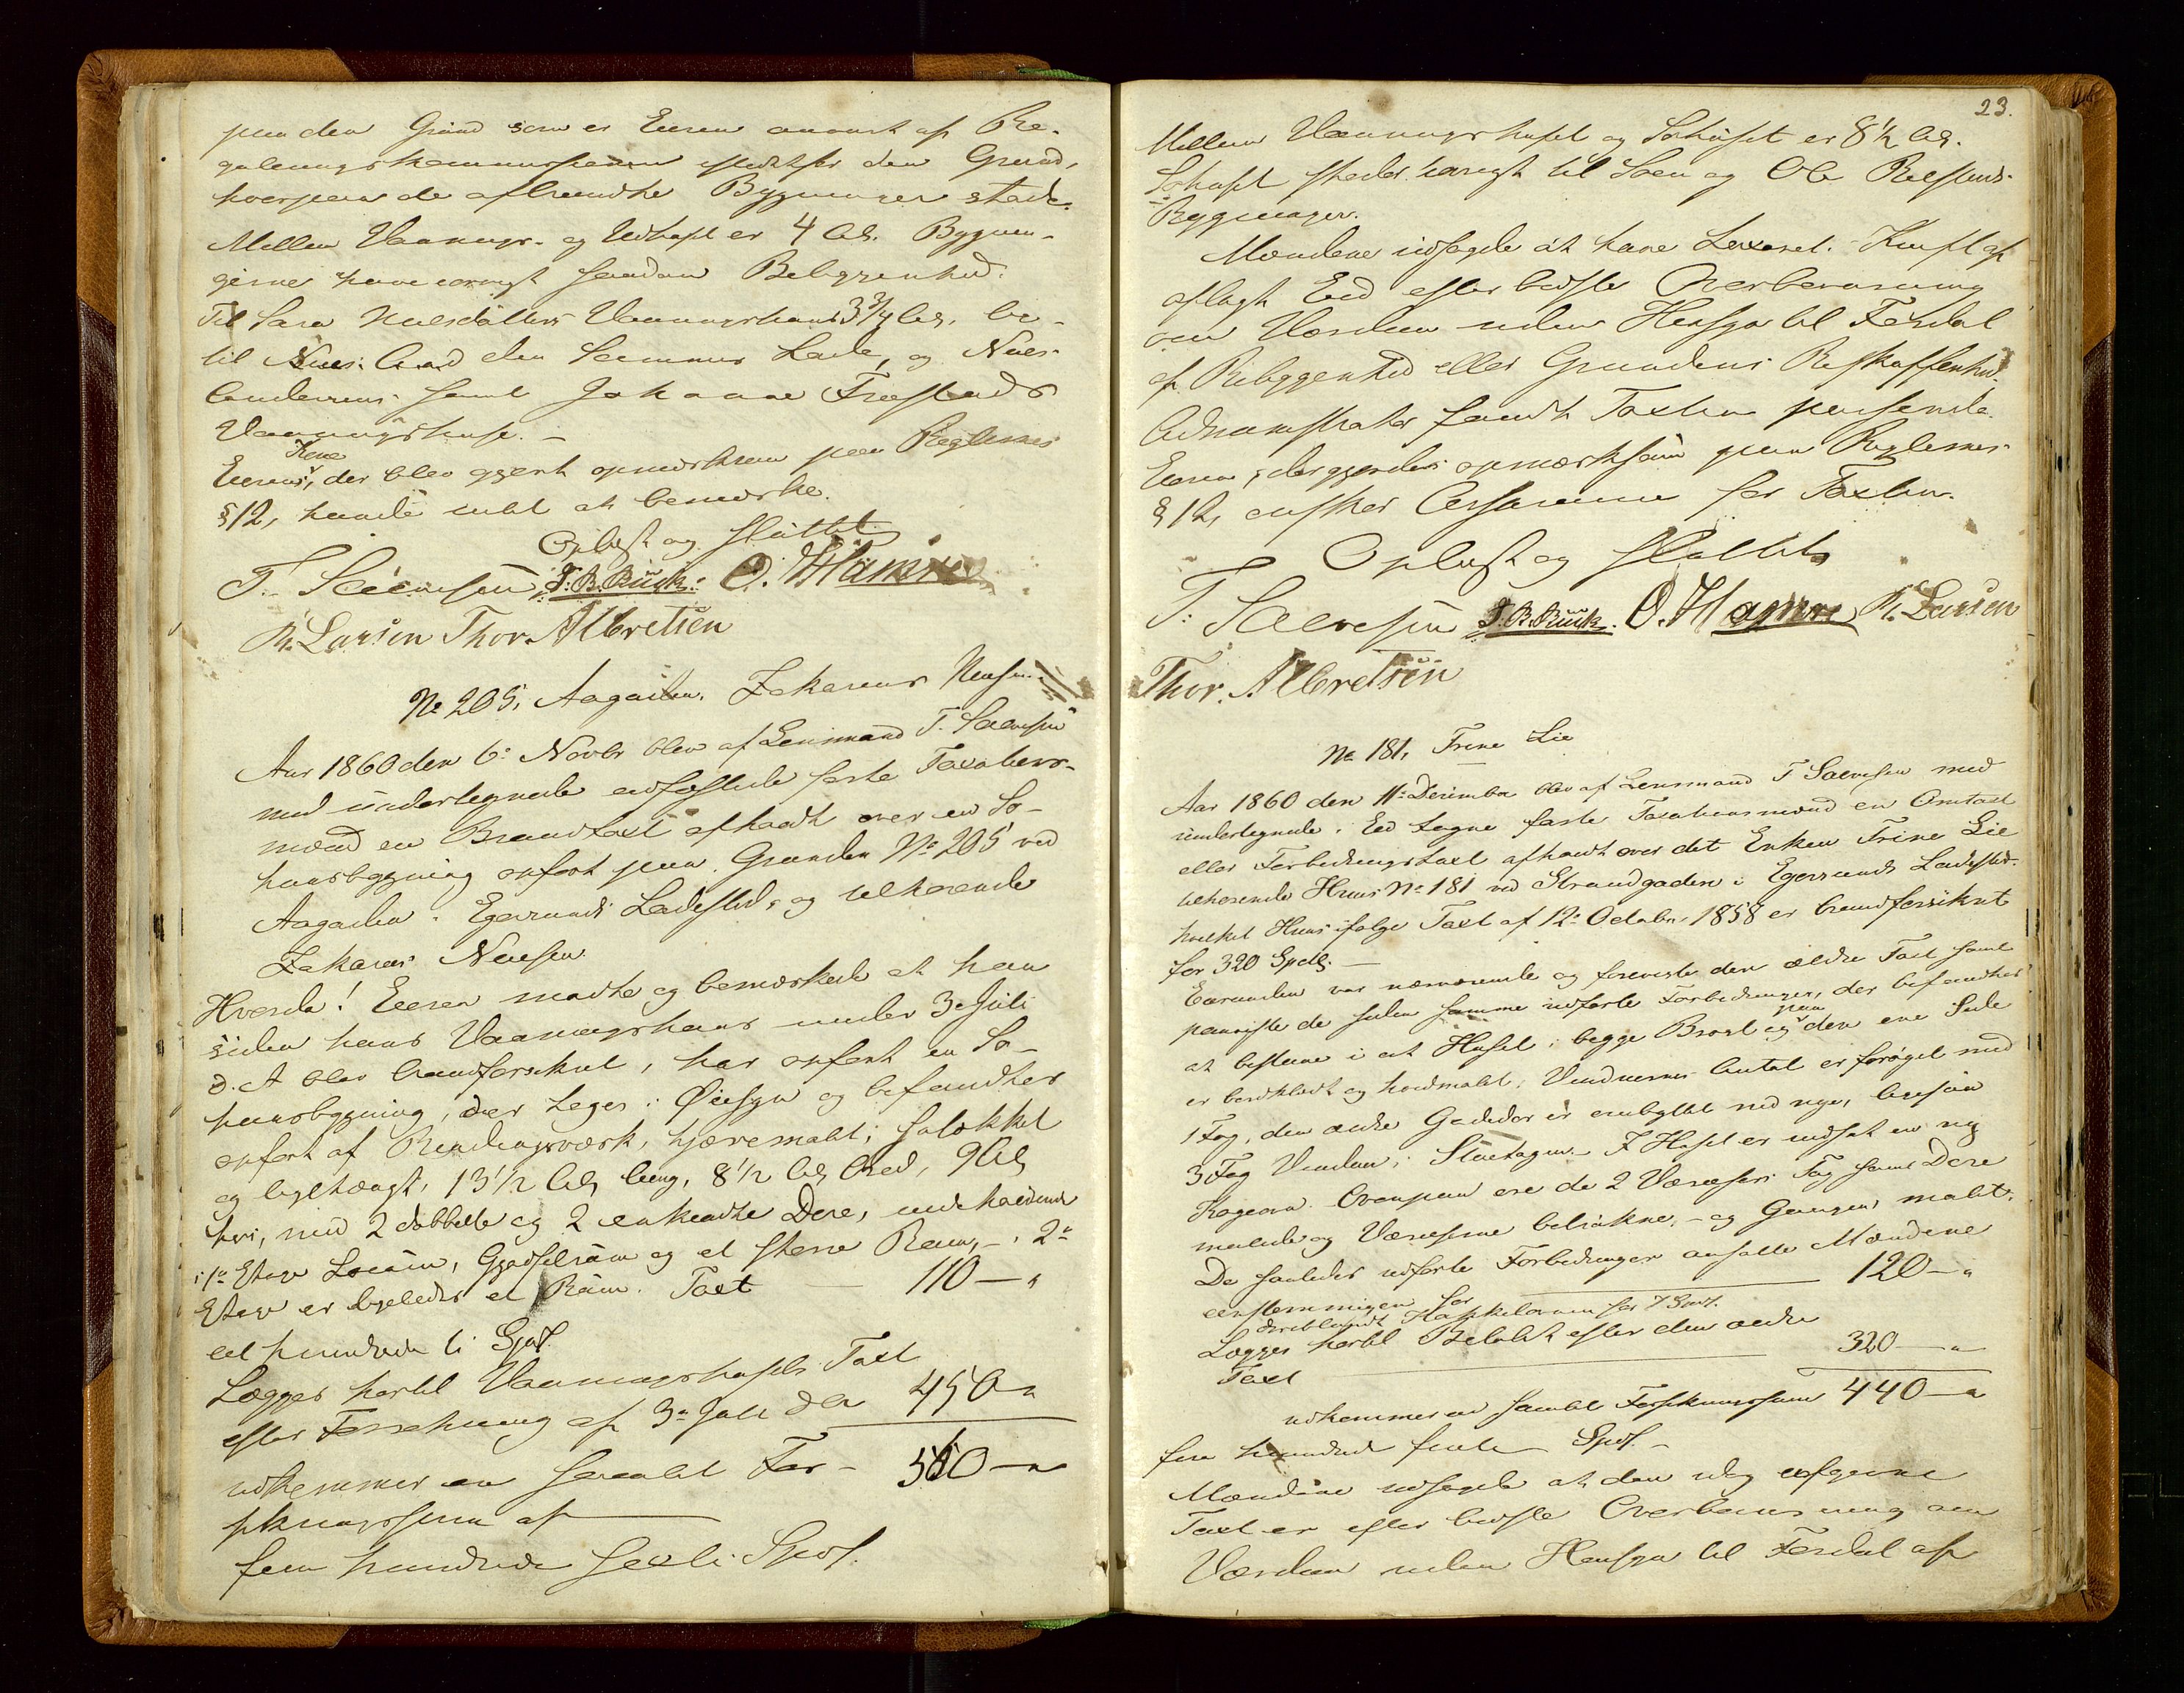 paa den Grund som er Eieren anvist af Re-
guleringskommissionen istedetfor den Grund,
hvorpaa de afbrændte Bygninger stode.
Mellem Vaanings- og Udhuset er 4 Al. Bygnin-
gerne have forøvrigt saadan Beliggenhed:
Til Sara Nielsdatters Vaaningshuus 3 3/4 Al.
til den Lade, og
samt Johanne
Vaaningshuse. –
Kone
Eierens, der blev gjort opmærksom paa Reglernes
§ 12, havde intet at bemærke.
Oplæst og sluttet.
T. Salvesen J.B. Büch. O. Hamre
R. Larsen Thor. Albretsen
No 205, Aagaden. Zakarias
Aar 1860 den 6te Novbr blev af Lensmand T. Salvesen
med undertegnede edfæstede faste Taxations-
mænd en Brandtaxt afholdt over en Sø-
huusbygning opført paa Grunden No 205 ved
Aagaden i Egersunds Ladested, og tilhørende
Zakarias
Hvorda! Eieren mødte og bemærkede at han
siden hans Vaaningshuus under 3die Juli
d. A. blev brandforsikret, har opført en Sø-
huusbygning, der toges i Øiesyn og befandtes
opført af Bindingsværk,
og teglhængt, 13 1/2 Al. lang, 8 1/2 Al. bred, 9 Al.
høi, med 2 dobbelte og 2 enkeldte Døre, indeholdende
i 1ste Etage og et større Rum, – i 2den
Etage er ligeledes et Rum. Taxt 110 – "
eet hundrede ti Spd.
Lægges hertil Vaaningshusets Taxt
efter Forretning af 3die Juli d. A. 450 "
udkommer en samlet For- 560 – "
sikringssum af
fem hundrede sexti Spd.
23.
Mellem Vaaningshuset og Søhuset er 8 1/2 Al.
Søhuset støder forøvrigt til Søen og Ole
Bygninger.
Mændene udsagde at have taxeret i Kraft af
aflagt Eed efter bedste Overbeviisning
om Værdien uden Hensyn til Fordel
af Beliggenhed eller Grundens Beskaffenhed.
Administrator fandt Taxten passende.
Eieren, der gjordes opmærksom paa Reglernes
§ 12, ønsker Assurance for Taxten.
Oplæst og sluttet
T. Salvesen J.B. Büch. O. Hamre R. Larsen
Thor. Albretsen
No 181, Trine Lie
Aar 1860 den 11te December blev af Lensmand T Salvesen med
undertegnede i Eed tagne faste Taxationsmænd en Omtaxt
eller Forbedringstaxt afholdt over det Enken Trine Lie
tilhørende Huus No 181 ved Strandgaden i Egersunds Ladested
hvilket Huus ifølge Taxt af 12te October 1858 er brandforsikret
for 320 Spdlr. –
Eierinden var nærværende og foreviste den ældre Taxt samt
paaviste de siden samme udførte Forbedringer, der befandtes
at bestaae i at Huset i begge Brøst og paa den ene Side
er bordklædt og hvidmalet; Vinduernes Antal er forøget med
1 Fag, den ældre Gadedør er ombyttet med nye, ligesaa
3 Fag Vinduer i Stuetagen. I Huset er indsat en ny
Kogeovn. Ovenpaa ere de 2 Værelsers Tag samt Døre
malede og Værelserne betrukne – og Gangen malet.
De saaledes udførte Forbedringer ansatte Mændene
eenstemmigen for 120 – "
deriblandt Kakkelovnen for 7 Spd.
Lægges hertil Beløbet efter den ældre
Taxt 320 – "
udkommer en samlet Forsikringssum 440 – "
fire hundrede firti Spd. –
Mændene udsagde at den idag afgivne
Taxt er efter bedste Overbeviisning om
Værdien uden Hensyn til Fordel af